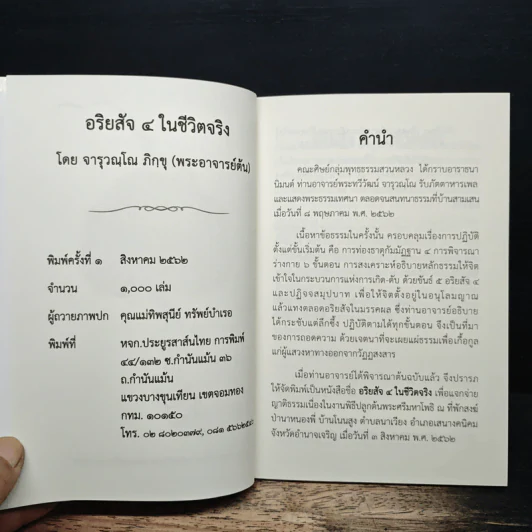 อริยสัจ ๔ ในชีวิตจริง
โดย จารุวณฺโณ ภิกฺขุ (พระอาจารย์ต้น)
พิมพ์ครั้งที่ ๑ สิงหาคม ๒๕๖๒
จำนวน ๑,๐๐๐ เล่ม
ผู้ถวายภาพปก คุณแม่ทิพสุนีย์ ทรัพย์บำเรอ
พิมพ์ที่ หจก.ประยูรสาส์นไทย การพิมพ์
๔๔/๑๓๒ ซ.กำนันแม้น ๓๖
ถ.กำนันแม้น
แขวงบางขุนเทียน เขตจอมทอง
กทม. ๑๐๑๕๐
โทร. ๐๒ ๘๐๒๐๓๗๙, ๐๘๑
คำนำ
คณะศิษย์กลุ่มพุทธธรรมสวนหลวง ได้กราบอาราธนา
นิมนต์ ท่านอาจารย์พระทวีวัฒน์ จารุวณฺโณ รับภัตตาหารเพล
และแสดงพระธรรมเทศนา ตลอดจนสนทนาธรรมที่บ้านสามเสน
เมื่อวันที่ ๘ พฤษภาคม พ.ศ. ๒๕๖๒
เนื้อหาข้อธรรมในครั้งนั้น ครอบคลุมเรื่องการปฏิบัติ
ตั้งแต่ขั้นเริ่มต้น คือ การท่องธาตุกัมมัฏฐาน ๔ การพิจารณา
ร่างกาย ๖ ขั้นตอน การสงเคราะห์อธิบายหลักธรรมให้จิต
เข้าใจในกระบวนการแห่งการเกิด-ดับ ด้วยขันธ์ ๕ อริยสัจ ๔
และปฏิจจสมุปบาท เพื่อให้จิตตั้งอยู่ในอนุโลมญาณ
แล้วแทงตลอดอริยสัจในมรรคผล ซึ่งท่านอาจารย์อธิบาย
ได้กระชับแต่ลึกซึ้ง ปฏิบัติตามได้ทุกขั้นตอน จึงเป็นที่มา
ของการถอดความ ด้วยเจตนาที่จะเผยแผ่ธรรมเพื่อเกื้อกูล
แก่ผู้แสวงหาทางออกจากวัฏฏสงสาร
เมื่อท่านอาจารย์ได้พิจารณาต้นฉบับแล้ว จึงปรารภ
ให้จัดพิมพ์เป็นหนังสือชื่อ อริยสัจ ๔ ในชีวิตจริง เพื่อแจกจ่าย
ญาติธรรมเนื่องในงานพิธีปลูกต้นพระศรีมหาโพธิ ณ ที่พักสงฆ์
ป่านาหนองพี่ บ้านโนนสูง ตำบลนาเวียง อำเภอเสนางคนิคม
จังหวัดอำนาจเจริญ เมื่อวันที่ ๓ สิงหาคม พ.ศ. ๒๕๖๒